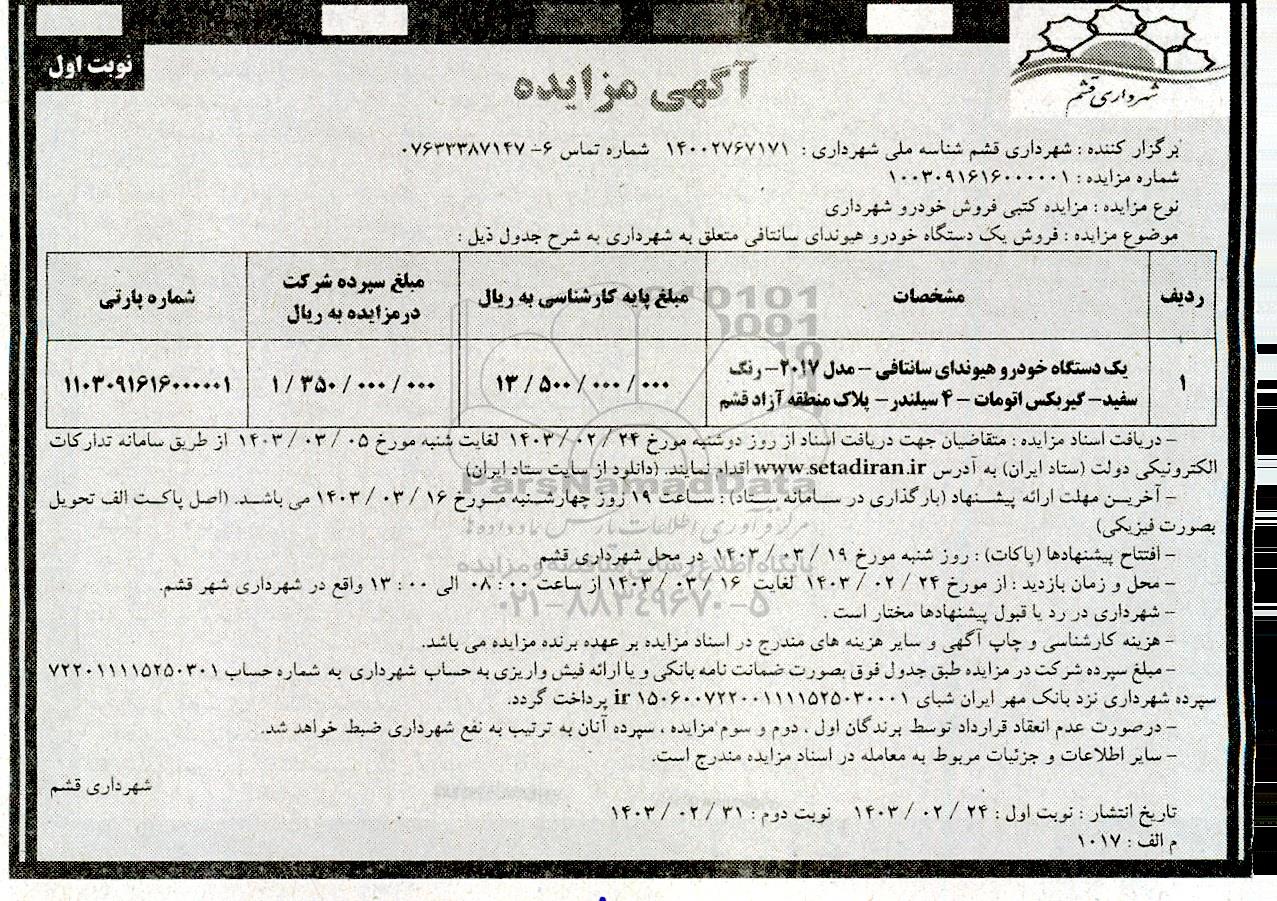 شهرداری قشم
نوبت اول
آگهی مزایده
برگزار کننده : شهرداری قشم شناسه ملی شهرداری : ۱۴۰۰۲۷۶۷۱۷۱ شماره تماس ۶- ۰۷۶۳۳۳۸۷۱۴۷
شماره مزایده : ۱۰۰۳۰۹۱۶۱۶۰۰۰۰۰۱
نوع مزایده : مزایده کتبی فروش خودرو شهرداری
موضوع مزایده : فروش یک دستگاه خودرو هیوندای سانتافی متعلق به شهرداری به شرح جدول ذیل :
ردیف مشخصات مبلغ پایه کارشناسی به ریال مبلغ سپرده شرکت درمزایده به ریال شماره پارتی
۱ یک دستگاه خودرو هیوندای سانتافی – مدل ۲۰۱۷- رنگ سفید- گیربکس اتومات - ۴ سیلندر- پلاک منطقه آزاد قشم ۱۳ / ۵۰۰ / ۰۰۰ / ۰۰۰ ۱ / ۳۵۰ / ۰۰۰ / ۰۰۰ ۱۱۰۳۰۹۱۶۱۶۰۰۰۰۰۱
– دریافت اسناد مزایده : متقاضیان جهت دریافت اسناد از روز دوشنبه مورخ ۲۴ / ۰۲ / ۱۴۰۳ لغایت شنبه مورخ ۰۵ / ۰۳ / ۱۴۰۳ از طریق سامانه تدارکات
الکترونیکی دولت (ستاد ایران) به آدرس www.setadiran.ir اقدام نمایند. (دانلود از سایت ستاد ایران)
– آخرین مهلت ارائه پیشنهاد (بارگذاری در سامانه ستاد) : ساعت ۱۹ روز چهارشنبه مورخ ۱۶ / ۰۳ / ۱۴۰۳ می باشد. (اصل پاکت الف تحویل
بصورت فیزیکی)
– افتتاح پیشنهادها (پاکات) : روز شنبه مورخ ۱۹ / ۰۳ / ۱۴۰۳ در محل شهرداری قشم
– محل و زمان بازدید : از مورخ ۲۴ / ۰۲ / ۱۴۰۳ لغایت ۱۶ / ۰۳ / ۱۴۰۳ از ساعت ۰۰ : ۰۸ الی ۰۰ : ۱۳ واقع در شهرداری شهر قشم.
– شهرداری در رد یا قبول پیشنهادها مختار است .
– هزینه کارشناسی و چاپ آگهی و سایر هزینه های مندرج در اسناد مزایده بر عهده برنده مزایده می باشد.
– مبلغ سپرده شرکت در مزایده طبق جدول فوق بصورت ضمانت نامه بانکی و یا ارائه فیش واریزی به حساب شهرداری به شماره حساب ۷۲۲۰۱۱۱۱۵۲۵۰۳۰۱
سپرده شهرداری نزد بانک مهر ایران شبای ir ۱۵۰۶۰۰۷۲۲۰۰۱۱۱۱۵۲۵۰۳۰۰۰۱ پرداخت گردد.
– درصورت عدم انعقاد قرارداد توسط برندگان اول ، دوم و سوم مزایده ، سپرده آنان به ترتیب به نفع شهرداری ضبط خواهد شد.
– سایر اطلاعات و جزئیات مربوط به معامله در اسناد مزایده مندرج است.
شهرداری قشم
تاریخ انتشار : نوبت اول : ۲۴ / ۰۲ / ۱۴۰۳ نوبت دوم : ۳۱ / ۰۲ / ۱۴۰۳
م الف : ۱۰۱۷
ParsNamadData
مرکز فرآوری اطلاعات پارس نماد داده ها
پایگاه اطلاع رسانی مناقصه و مزایده
۰۲۱-۸۸۳۴۹۶۷۰-۵